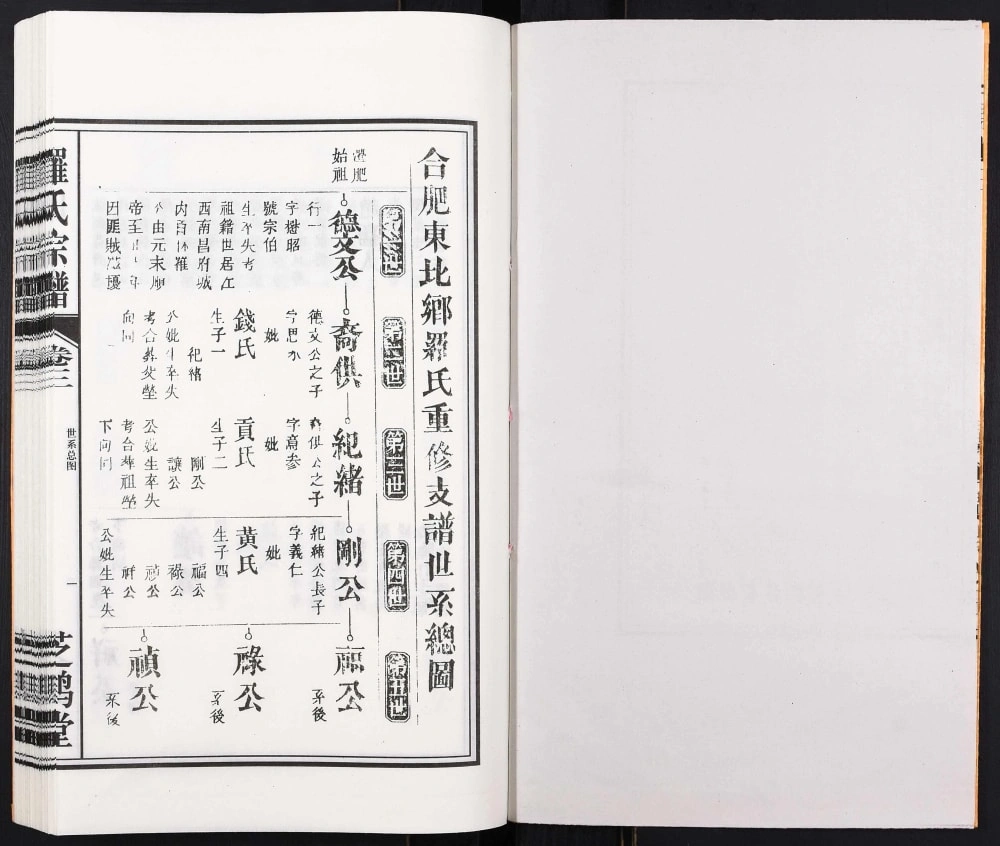 合肥東北鄉羅氏重修支譜世系總圖
第一世
第二世
第三世
第四世
第五世
遷肥
始祖
德文公
行一
字懋昭
號宗伯
生卒失考
祖籍世居江
西南昌府城
内百休羅
公由元末順
帝至正年
因匪賊荒擾
裔供
德文公之子
字思水
妣
錢氏
生子一
紀緒
公妣生卒失
考合葬父塋
向同
紀緒
裔供公之子
字寯参
妣
貢氏
生子二
剛公
讓公
公妣生卒失
考合葬祖塋
下向同
剛公
紀緒公長子
字義仁
妣
黃氏
生子四
福公
祿公
禎公
祥公
公妣生卒失
福公
系後
祿公
系後
禎公
系後
羅氏宗譜
卷三
世系总图
一
芝鹤堂